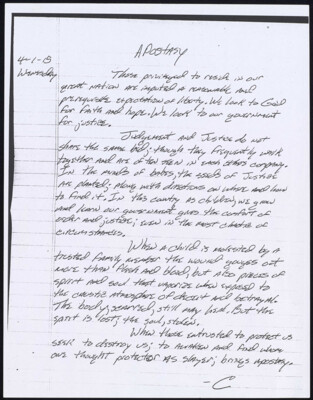 APOSTASY
4-1-8
Wensday
Those priviliged to reside in our
great nation are imputed a reasonable and
prerequisite expectation of liberty. We look to God
for faith and hope. We look to our government
for justice.
Judgement and Justice do not
share the same bed; though they frequently work
together and are often seen in each others company.
In the minds of babes, the seeds of Justice
are planted; along with directions on where and how
to find it. In this country as children, we grow
and learn our government gives the comfort of
order and justice; even in the most chaotic of
circumstances.
When a child is molested by a
trusted family member the wound gouges out
more than flesh and blood, but also pieces of
spirit and soul that vaporize when exposed to
the caustic atmosphere of deceit and betrayal.
The body, scarred, still may heal. But the
spirit is lost; the soul, stolen.
When those entrusted to protect us
seek to destroy us; to awaken and find where
one thought protector as slayer; brings apostasy.
- C